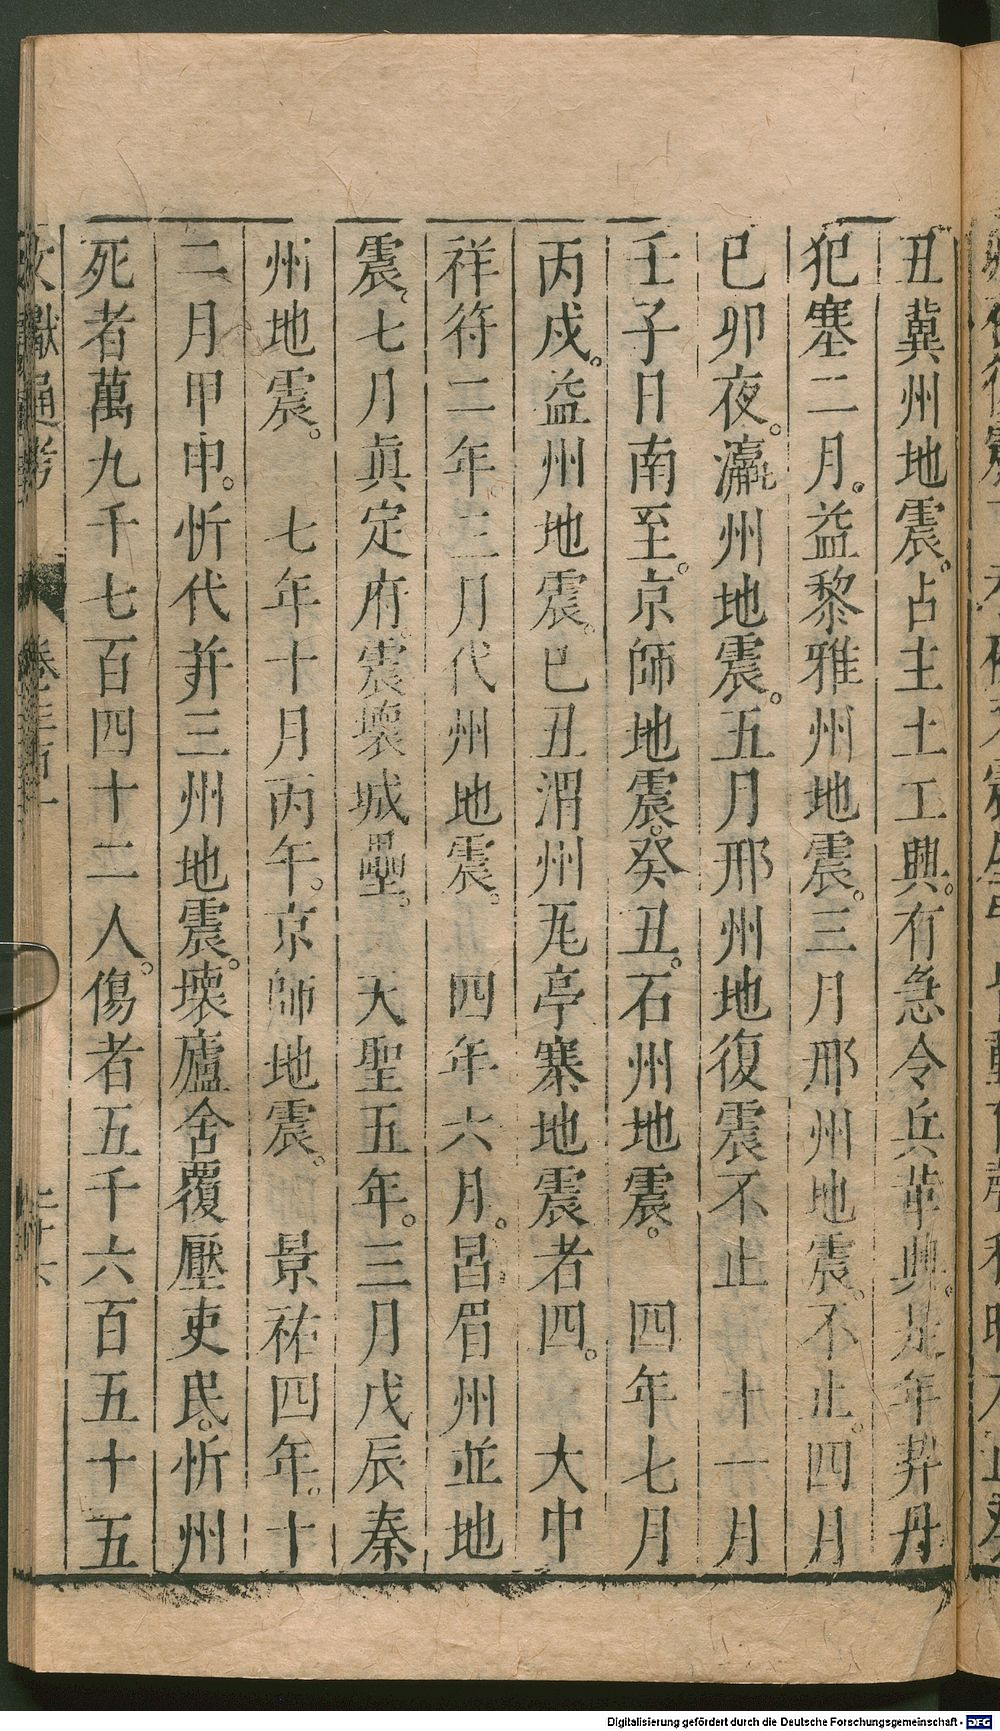 丑冀州地震。占主土工興。有急令兵革興。是年契丹
犯塞二月。益黎雅州地震。三月邢州地震。不止。四月
已卯夜。瀛州地震。五月邢州地復震不止　十一月
壬子日南至。京師地震。癸丑。石州地震。　四年七月
丙戌。益州地震。已丑渭州瓦亭寨地震者四。　大中
祥符二年。三月代州地震。　四年六月。昌眉州並地
震。七月眞定府。震壞城壘。　天聖五年。三月戊辰秦
州地震。　七年十月丙午。京師地震。　景祐四年。十
二月甲申。忻代并三州地震。壞廬舍覆壓吏民。忻州
死者萬九千七百四十二人。傷者五千六百五十五
文獻通考　卷三百一　二十六
Digitalisierung gefördert durch die Deutsche Forschungsgemeinschaft - DFG